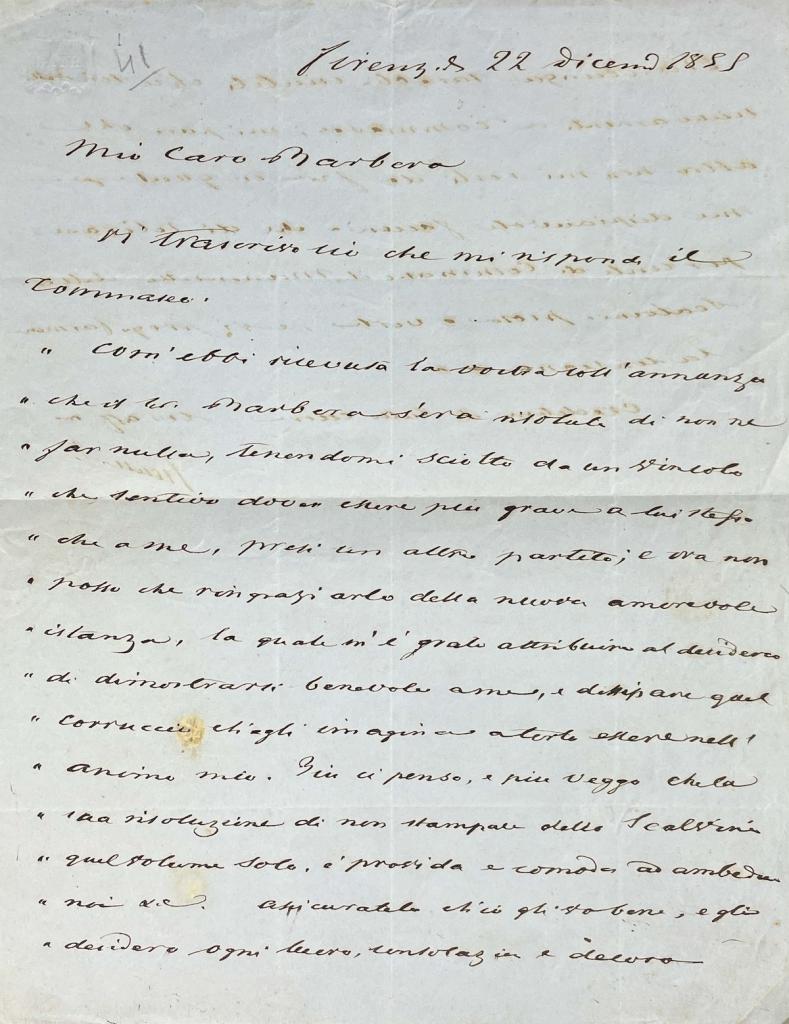 41/
Firenze 22 Dicem 1855
Mio Caro Barbera
Vi trascrivo ciò che mi risponde il
Tommaseo.
" Com' ebbi ricevuta la vostra coll' annunzio
" che il Sr. Barbera s'era risoluto di non ne
" far nulla, tenendomi sciolto da un vincolo
" che sentivo dover essere più grave a lui stesso
" che a me, presi un altro partito; e ora non
" posso che ringraziarlo della nuova amorevole
" istanza, la quale m'è grato attribuire al desiderio
" di dimostrarsi benevolo a me, e dissipare quel
" corruccio ch'egli imagina a torto essere nell'
" animo mio. Più ci penso, e più veggo che la
" sua risoluzione di non stampare dello Scalvini
" quel volume solo, è provida e comoda ad ambedue
" noi &c. Assicuratelo ch'io gli vo bene, e gli
" desidero ogni lucro, consolazione e decoro